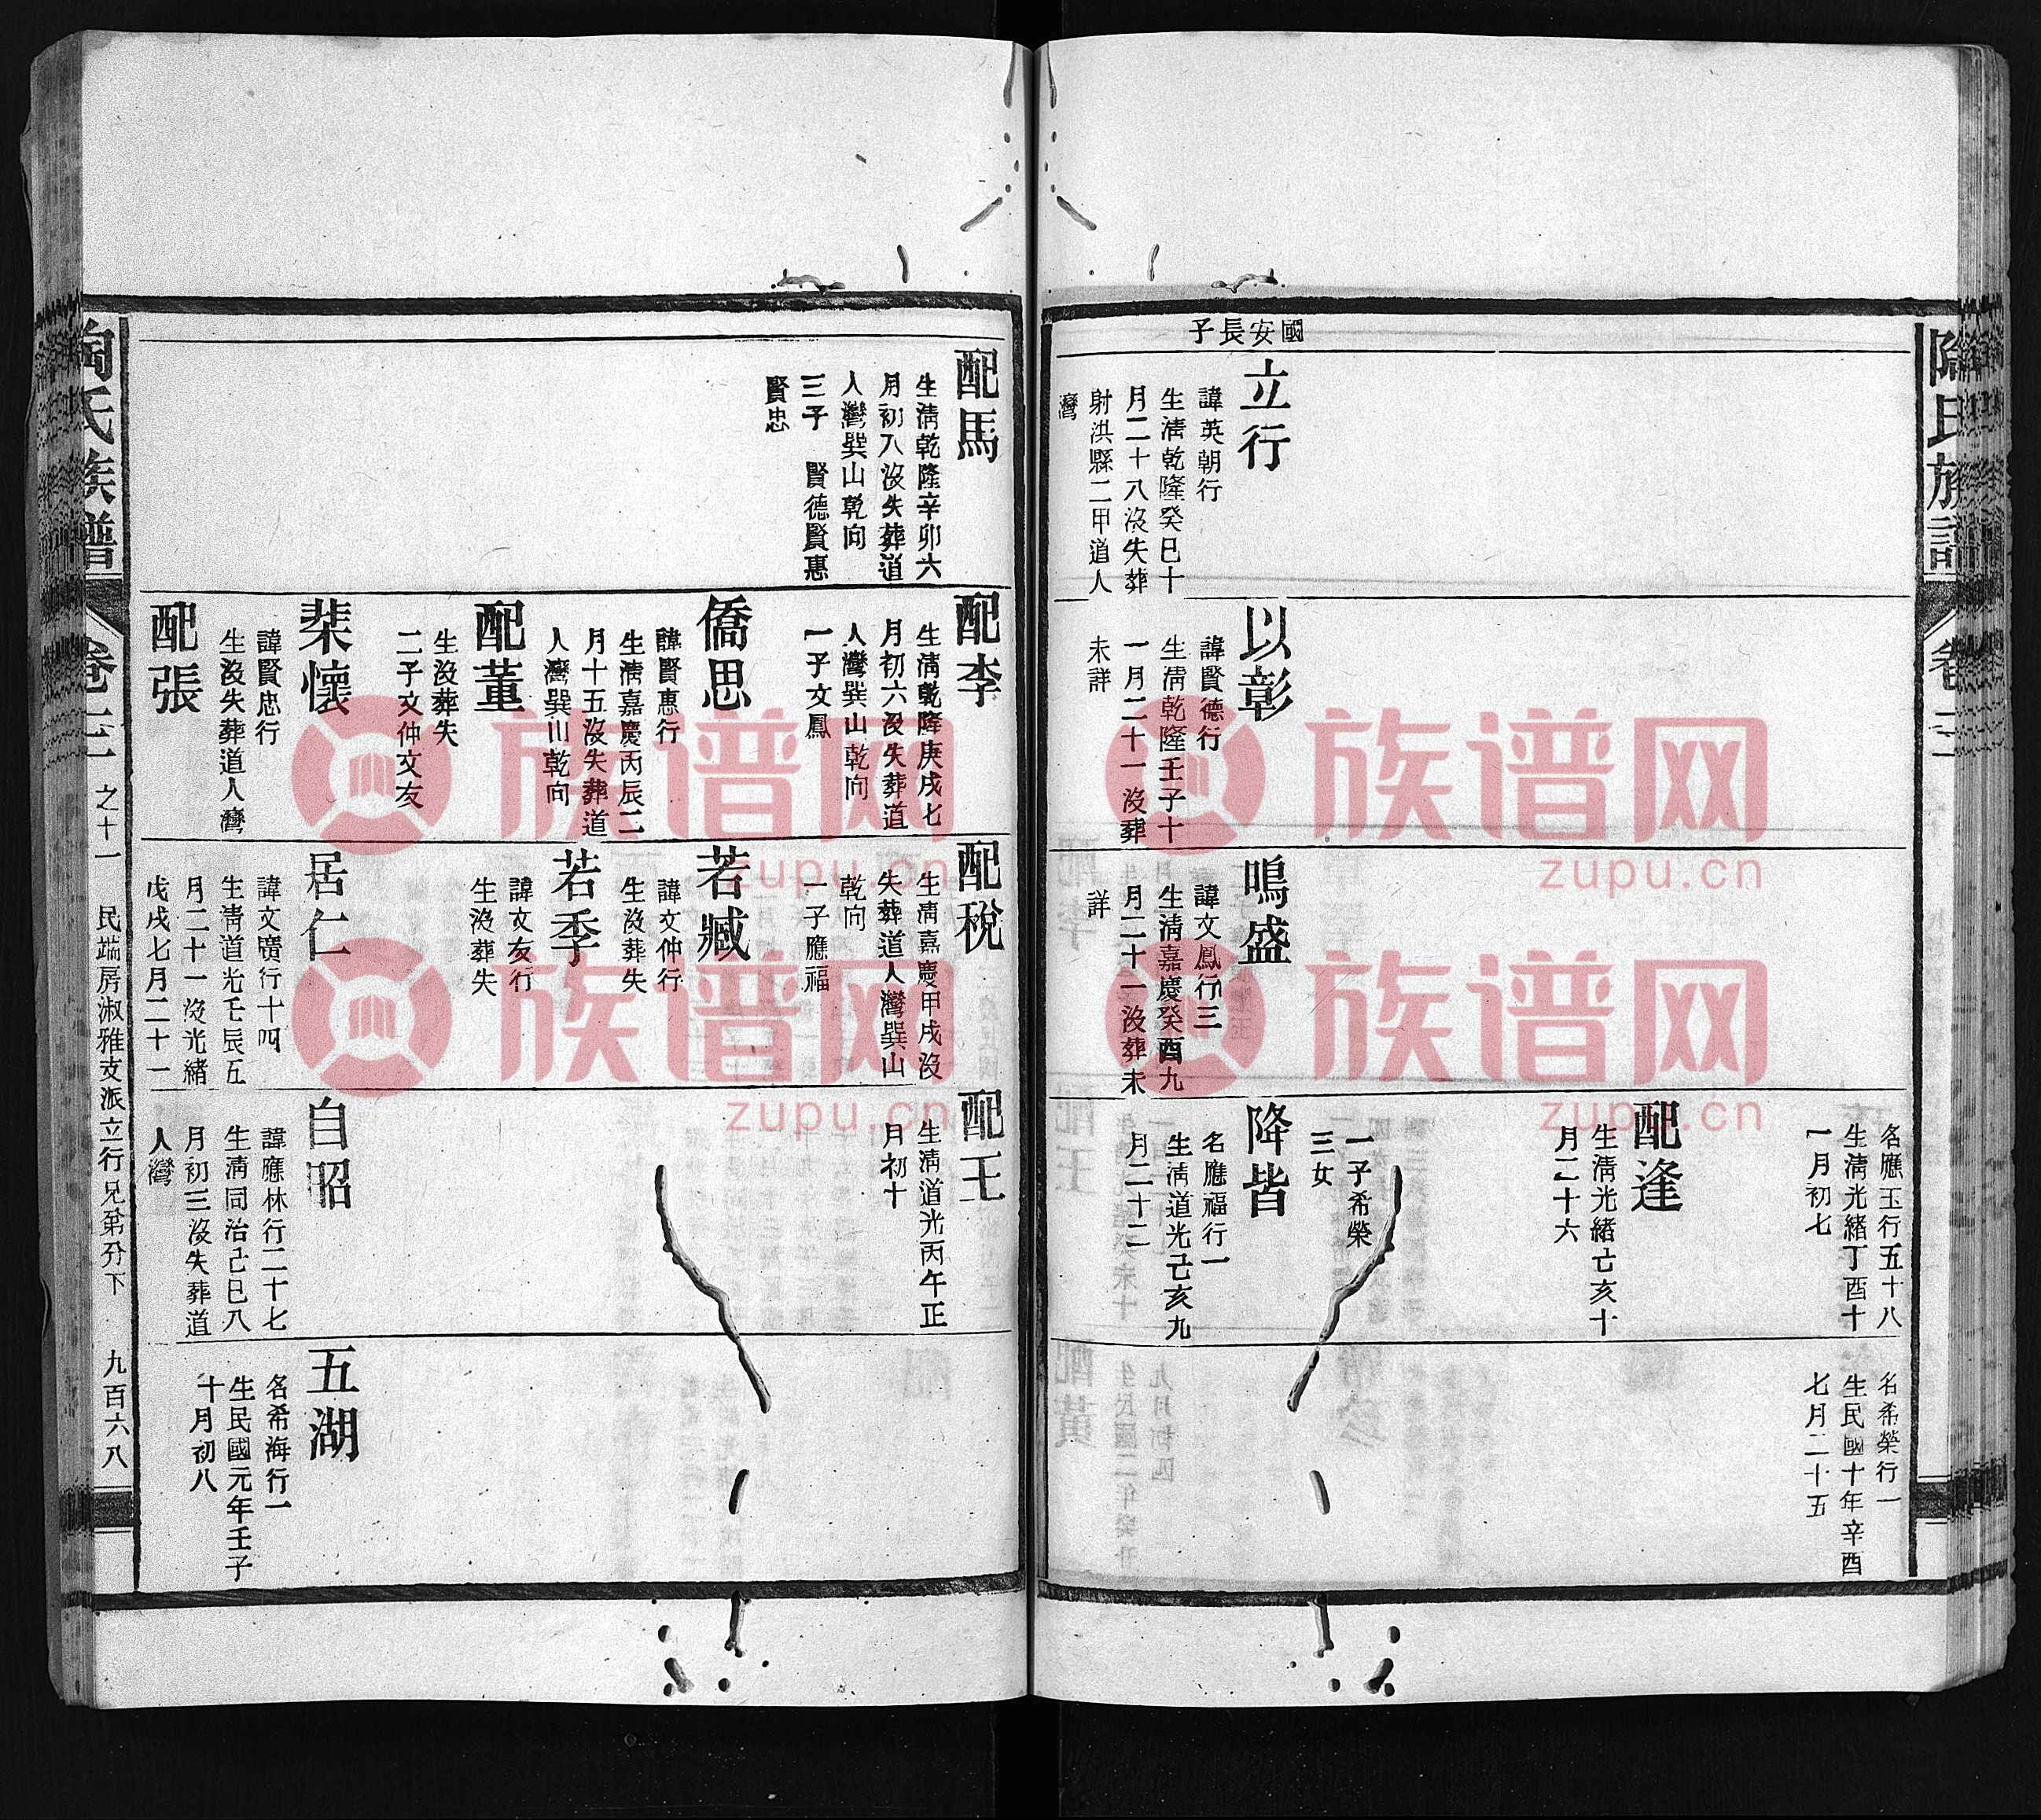 陶氏族譜
卷三
國安長子
立行
諱英朝行
生清乾隆癸巳十
月二十八沒失葬
射洪縣二甲道人
灣
以彰
諱賢德行
生清乾隆壬子十
一月二十一沒葬
未詳
鳴盛
諱文鳳行三
生清嘉慶癸酉九
月二十一沒葬未
詳
名應玉行五十八
生清光緒丁酉十
一月初七
配逢
生清光緒亡亥十
月二十六
一子希榮
三女
降皆
名應福行一
生清道光己亥九
月二十二
名希榮行一
生民國十年辛酉
七月二十五
配馬
生清乾隆辛卯六
月初八沒失葬道
人灣巽山乾向
三子 賢德賢惠
賢忠
配李
生清乾隆庚戌七
月初六沒失葬道
人灣巽山乾向
一子文鳳
僑思
諱賢惠行
生清嘉慶丙辰二
月十五沒失葬道
人灣巽川乾向
配董
生沒葬失
二子文仲文友
棐懷
諱賢忠行
生沒失葬道人灣
配張
配稅
生清嘉慶甲戌沒
失葬道人灣巽山
乾向
一子應福
若臧
諱文仲行
生沒葬失
若季
諱文友行
生沒葬失
居仁
諱文廣行十四
生清道光壬辰五
月二十一沒光緒
戊戌七月二十一
配王
生清道光丙午正
月初十
自昭
諱應林行二十七
生清同治己巳八
月初三沒失葬道
人灣
五湖
名希海行一
生民國元年壬子
十月初八
陶氏族譜
卷三
之十一
民端房淑雅支派立行兄弟分下
九百六八
族谱网
zupu.cn
族谱网
zupu.cn
族谱网
zupu.cn
族谱网
zupu.cn